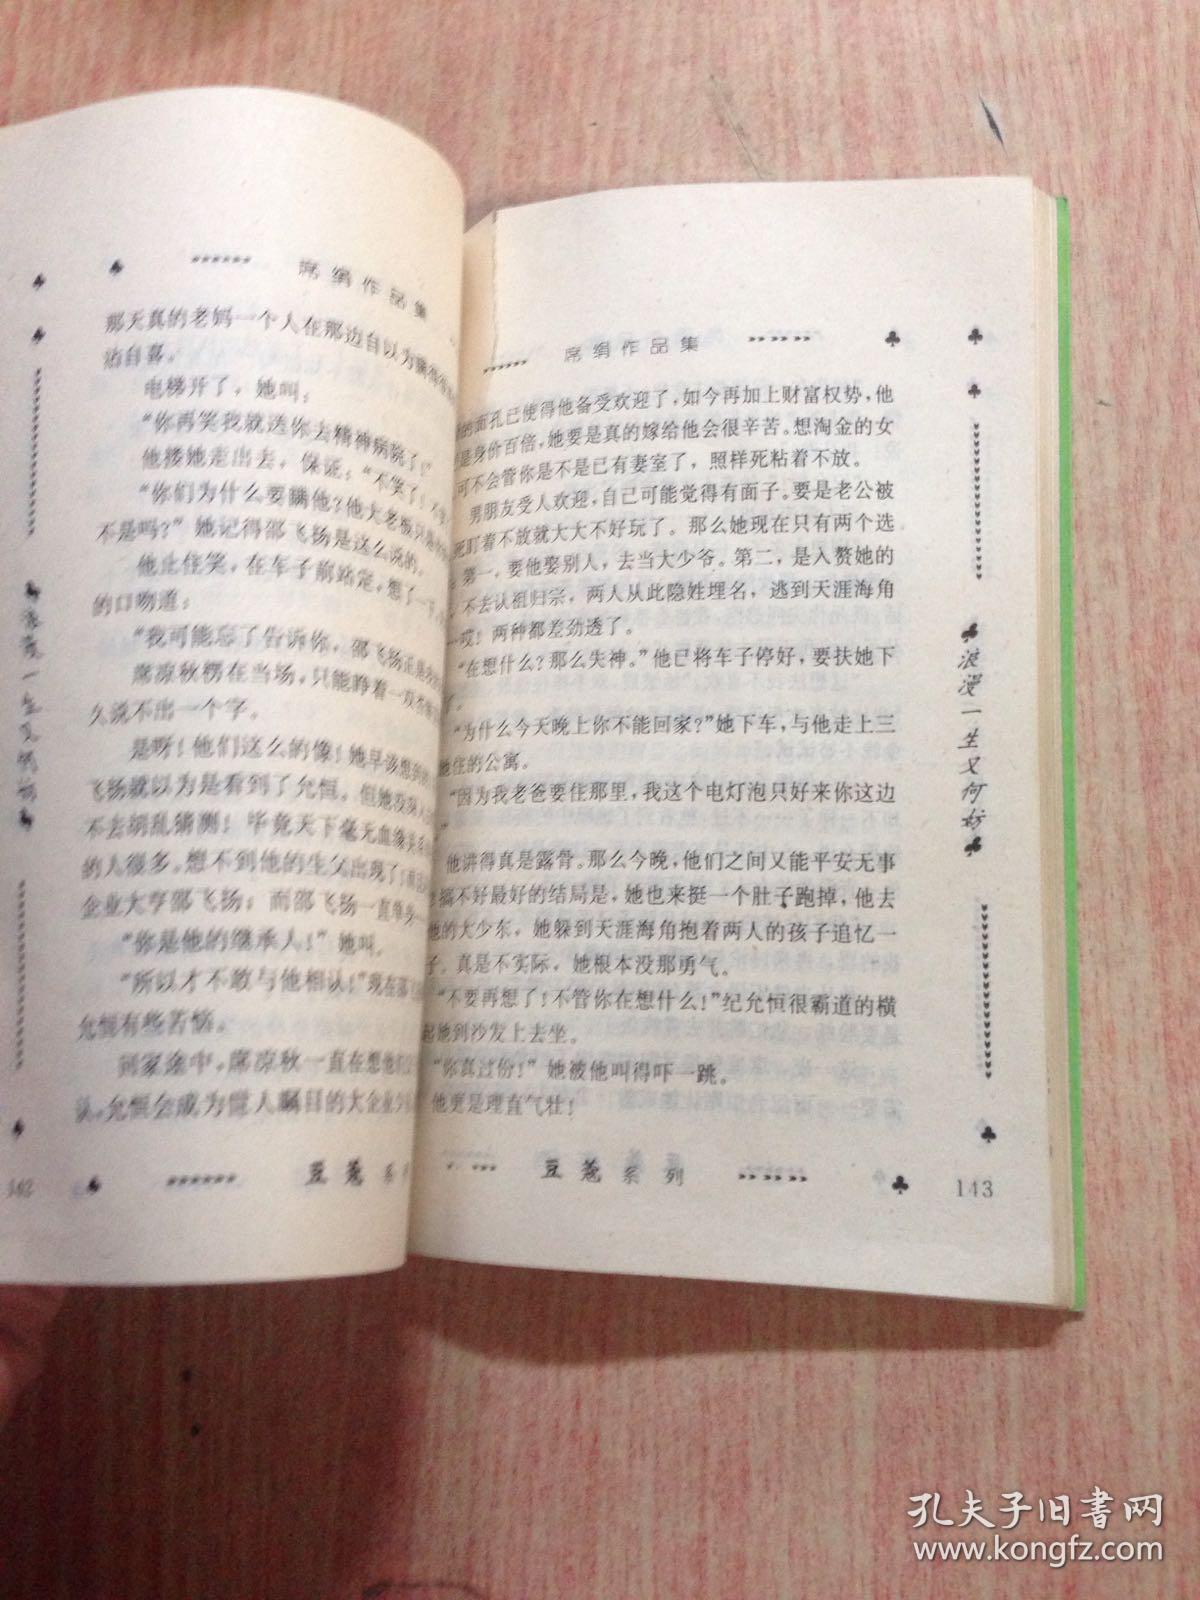 席绢作品集
那天真的老妈一个人在那边自以为
沾自喜。
电梯开了，她叫：
“你再笑我就送你去精神病院了！”
他搂她走出去，保证：“不笑了！
“你们为什么要瞒他？他大老板只是
不是吗？”她记得邵飞扬是这么说的。
他止住笑，在车子前站定，想了一下
的口吻道：
“我可能忘了告诉你，邵飞扬正是
席凉秋楞在当场，只能睁着一双
久说不出一个字。
是呀！他们这么的像！她早该想到
飞扬就以为是看到了允恒。但她没
不去胡乱猜测！毕竟天下毫无血缘关系
的人很多。想不到他的生父出现了！
企业大亨邵飞扬；而邵飞扬一直单身
“你是他的继承人！”她叫。
“所以才不敢与他相认！”现在
允恒有些苦恼。
回家途中，席凉秋一直在想他们
认，允恒会成为世人瞩目的大企业少
142
豆蔻系列
席绢作品集
的面孔已使得他备受欢迎了，如今再加上财富权势，他
是身价百倍，她要是真的嫁给他会很辛苦。想淘金的女
可不会管你是不是已有妻室了，照样死粘着不放。
男朋友受人欢迎，自己可能觉得有面子。要是老公被
死盯着不放就大大不好玩了。那么她现在只有两个选
第一，要他娶别人，去当大少爷。第二，是入赘她的
不去认祖归宗，两人从此隐姓埋名，逃到天涯海角
哎！两种都差劲透了。
“在想什么？那么失神。”他已将车子停好，要扶她下
了。
“为什么今天晚上你不能回家？”她下车，与他走上三
她住的公寓。
“因为我老爸要住那里，我这个电灯泡只好来你这边
”
他讲得真是露骨。那么今晚，他们之间又能平安无事
搞不好最好的结局是，她也来挺一个肚子跑掉，他去
他的大少东，她躲到天涯海角抱着两人的孩子追忆一
子。真是不实际，她根本没那勇气。
“不要再想了！不管你在想什么！”纪允恒很霸道的横
起她到沙发上去坐。
“你真过份！”她被他叫得吓一跳。
他更是理直气壮！
豆蔻系列
143
浪漫一生又何妨
孔夫子旧书网
www.kongfz.com